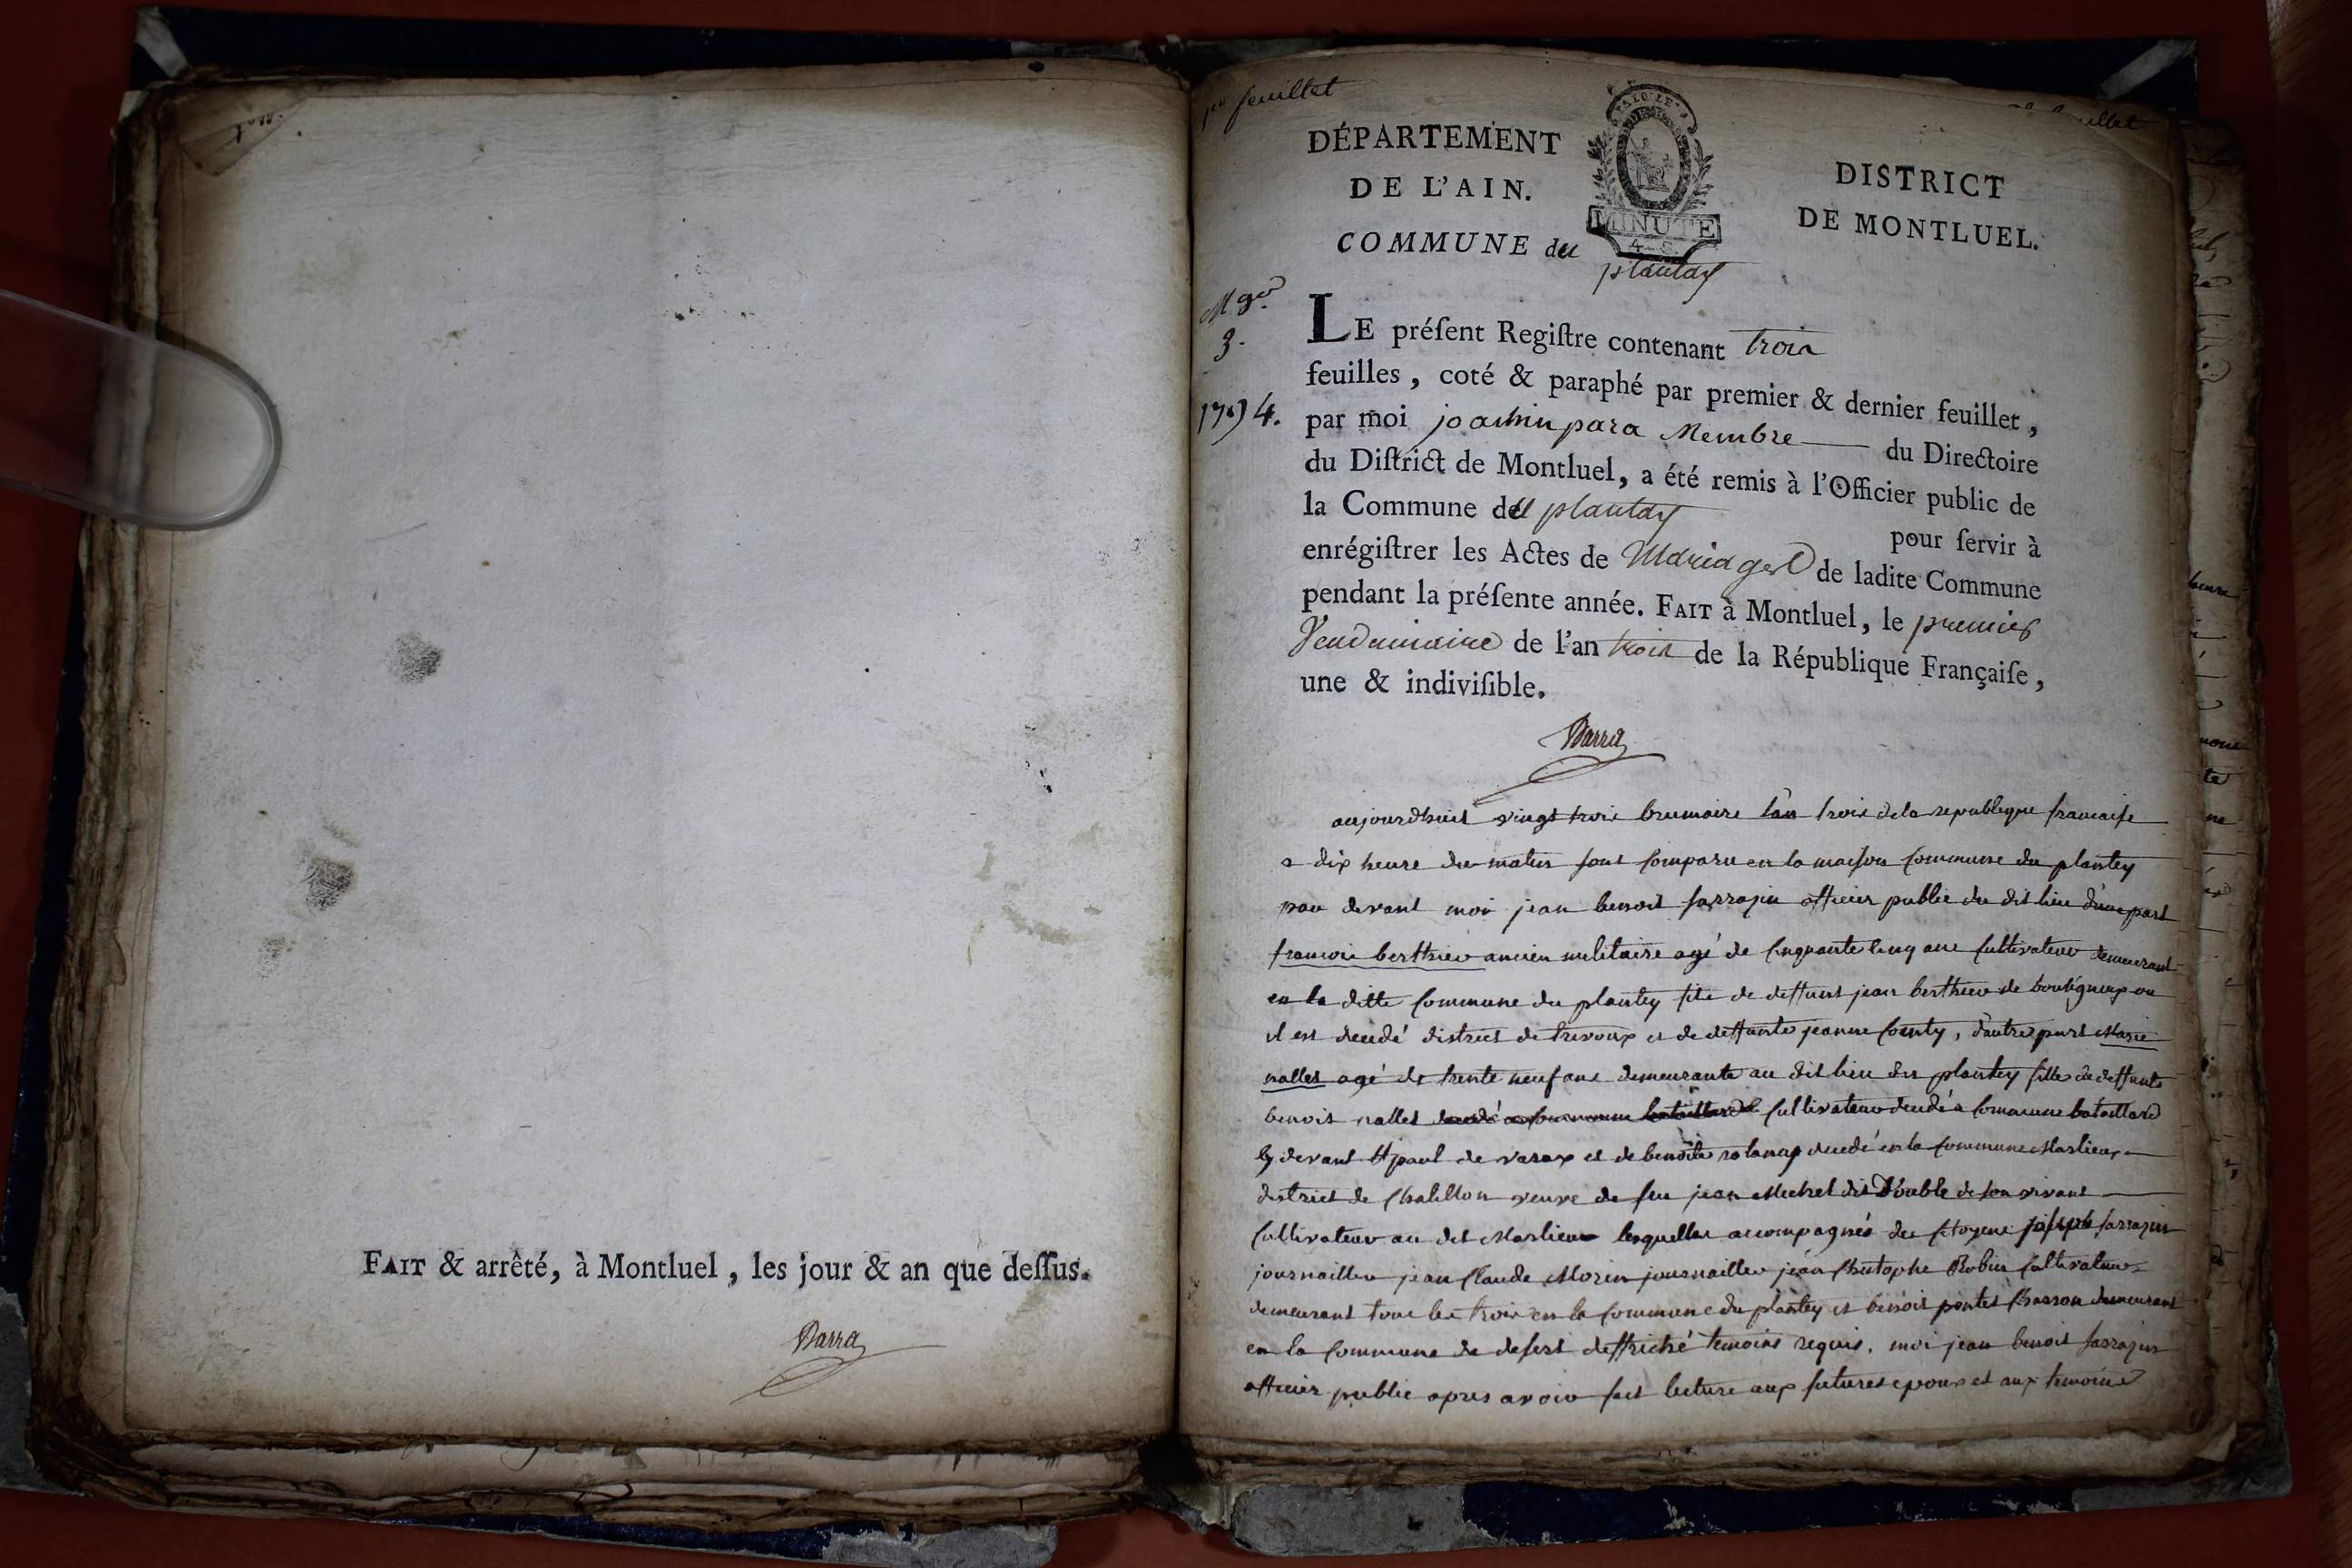 FAIT & arrêté, à Montluel, les jour & an que deſſus.
Parra
1er feuillet
DÉPARTEMENT
DE L'AIN.
COMMUNE du
plantay
MINUTE
4 S.
DISTRICT
DE MONTLUEL.
M.ges
3.
1794.
LE préſent Regiſtre contenant trois
feuilles, coté & paraphé par premier & dernier feuillet,
par moi joachin para Membre du Directoire
du Diſtrict de Montluel, a été remis à l'Officier public de
la Commune du plantay pour ſervir à
enrégiſtrer les Actes de Mariages de ladite Commune
pendant la préſente année. FAIT à Montluel, le premier
Vendemiaire de l'an trois de la République Françaiſe,
une & indiviſible.
Parra
aujourdhuit vingt trois brumaire l'an trois de la republique francaise
a dix heure du matin sont comparu en la maison commune du plantey
par devant moi jean benoit sarrazin officier public du dit lieu d'une part
francois berthier ancien militaire agé de cinquante cinq ans cultivateur demeurant
en la ditte commune du plantey fils de deffunt jean berthier de bouligneux ou
il est decedé district de trevoux et de deffunte jeanne, d'autre part Marie
nallet agé de trente neuf ans demeurante au dit lieu du plantey fille de deffunts
benoit nallet cultivateur decedé a commune bataillard
cy devant St paul de varax et de benoite decedé en la commune Marlieux
district de Chatillon veuve de feu jean Michel dit Double de son vivant
cultivateur au dit Marlieux lesquelles accompagnés des citoyens joseph sarrazin
journaillier jean Claude Morin journaillier jean Christophe Robin cultivateur
demeurant tous les trois en la commune du plantey et benoit pontet demeurant
en la commune de desert deffriché temoins requis. moi jean benoit sarrazin
officier public apres avoir fait lecture aux futures epoux et aux temoins